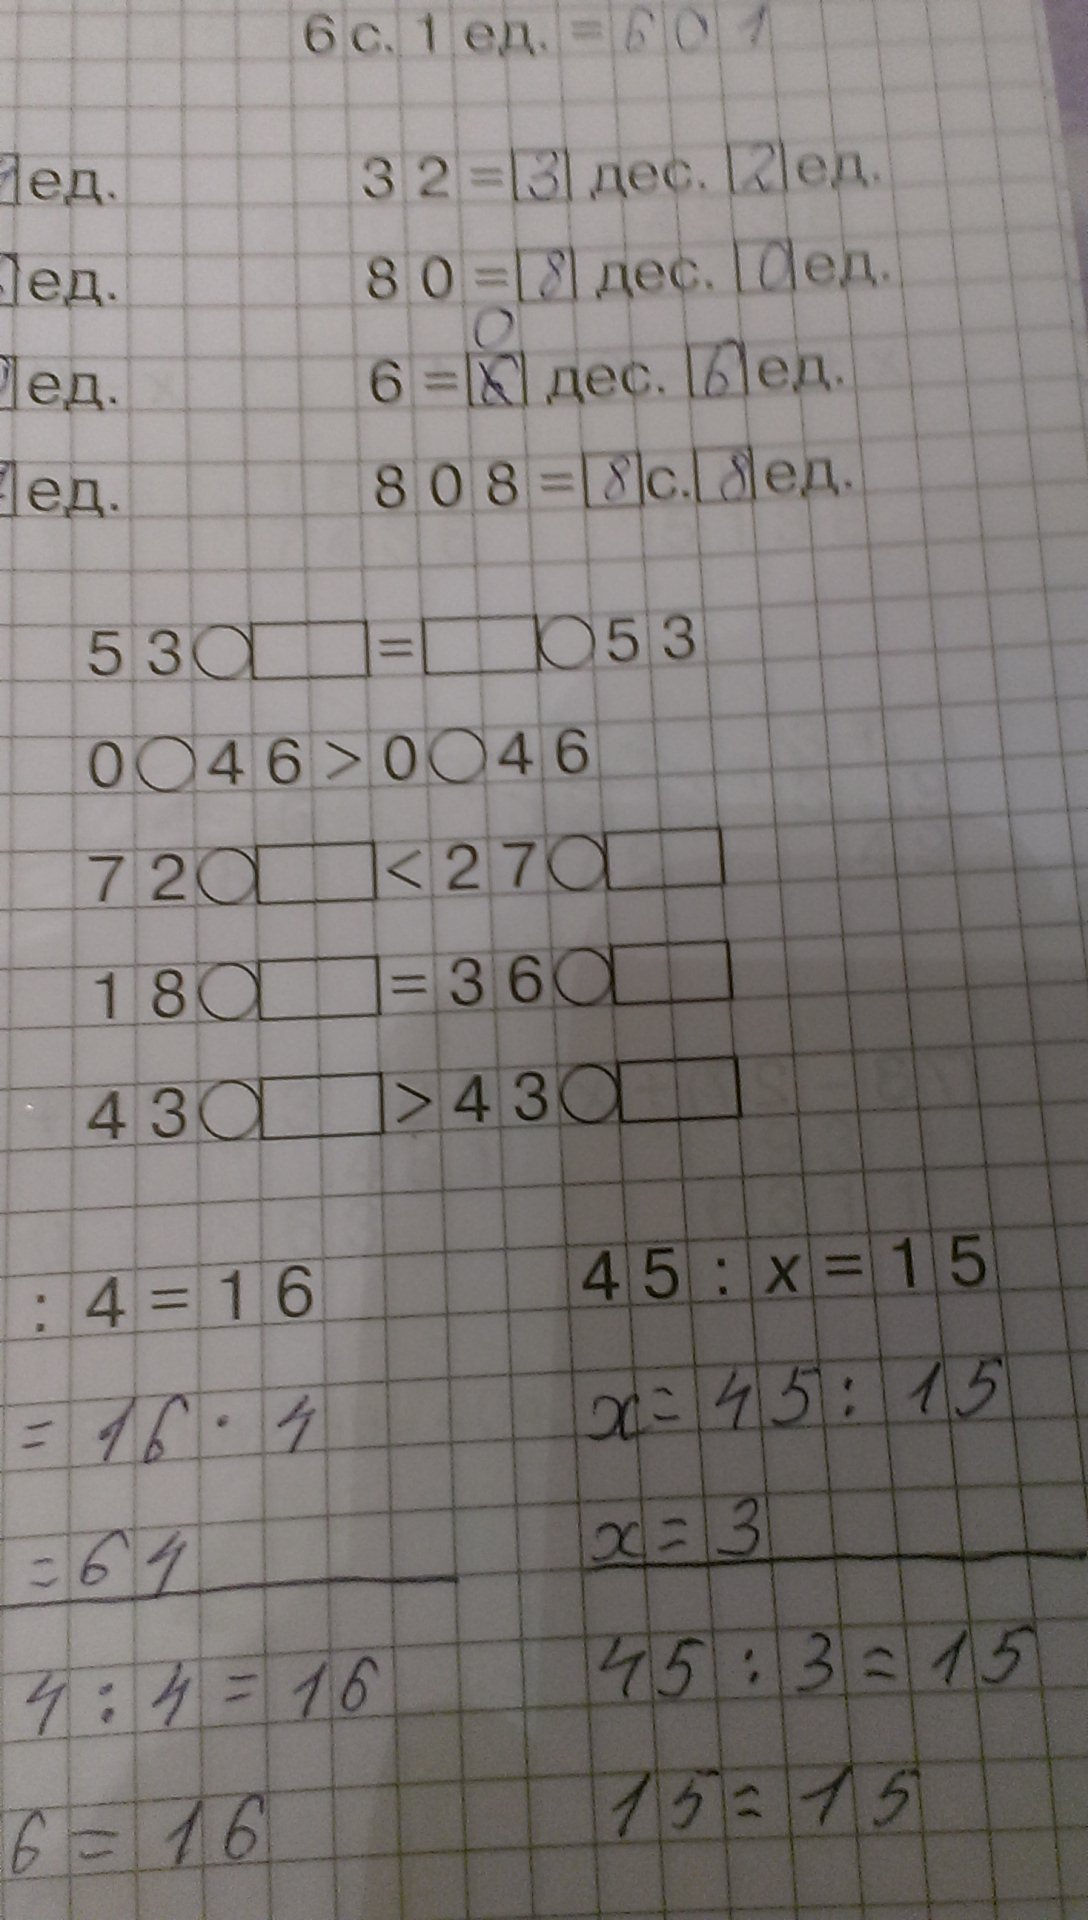 6 с. 1 ед. = 601
ед. 32 = 3 дес. 2 ед.
ед. 80 = 8 дес. 0 ед.
0
ед. 6 = 6 дес. 6 ед.
ед. 808 = 8 с. 8 ед.
53 = 53
0 46 > 0 46
72 < 27
18 = 36
43 > 43
: 4 = 16 45 : х = 15
= 16 · 4 х = 45 : 15
= 64 х = 3
4 : 4 = 16 45 : 3 = 15
6 = 16 15 = 15